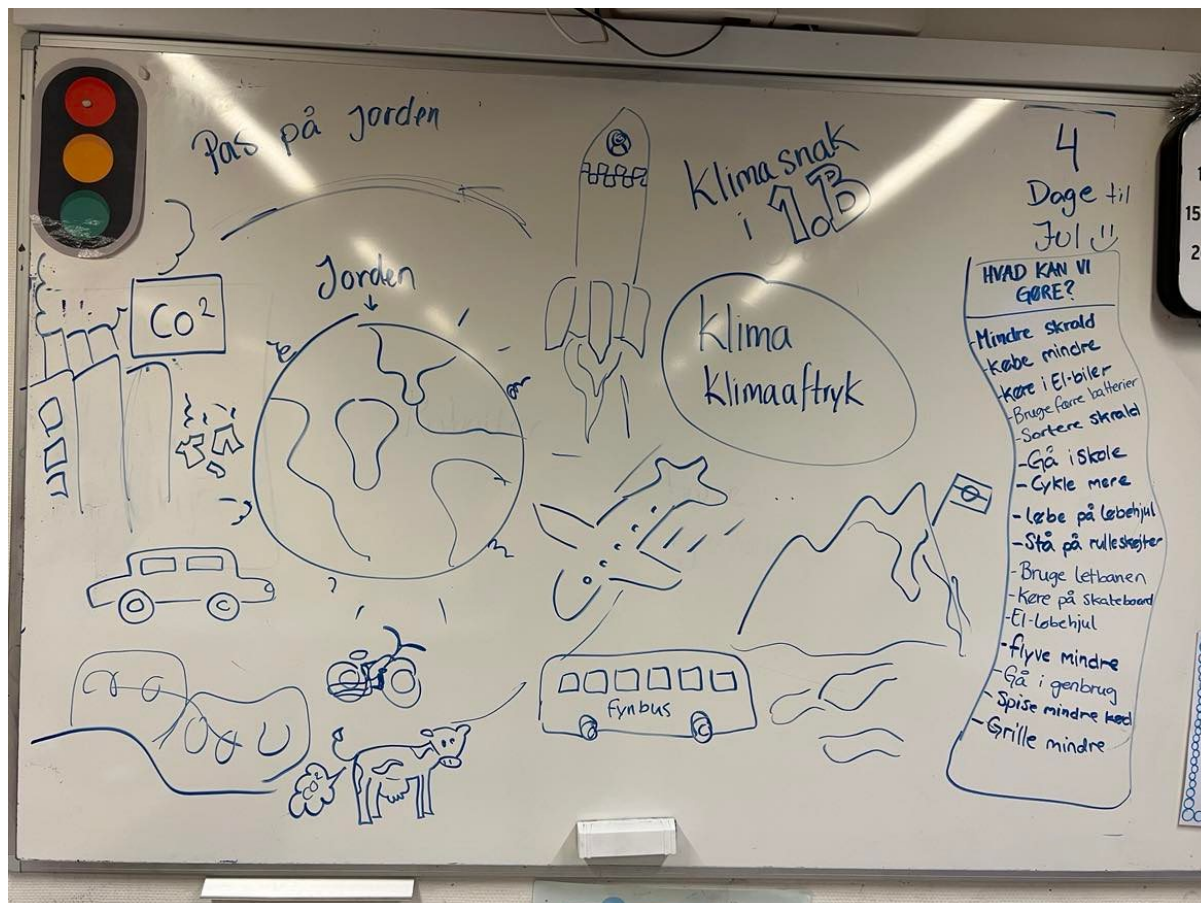 Pas på jorden
Klima snak
i 1.B
4
Dage til
Jul
Jorden
Co²
Klima
Klimaaftryk
HVAD KAN VI
GØRE?
-Mindre skrald
-Købe mindre
-Køre i El-biler
-Bruge færre batterier
-Sortere skrald
-Gå i skole
-Cykle mere
-løbe på løbehjul
-Stå på rulleskøjter
-Bruge letbanen
-Køre på skateboard
-El-løbehjul
-flyve mindre
-Gå i genbrug
-Spise mindre kød
-Grille mindre
fynbus
CO²
15
2